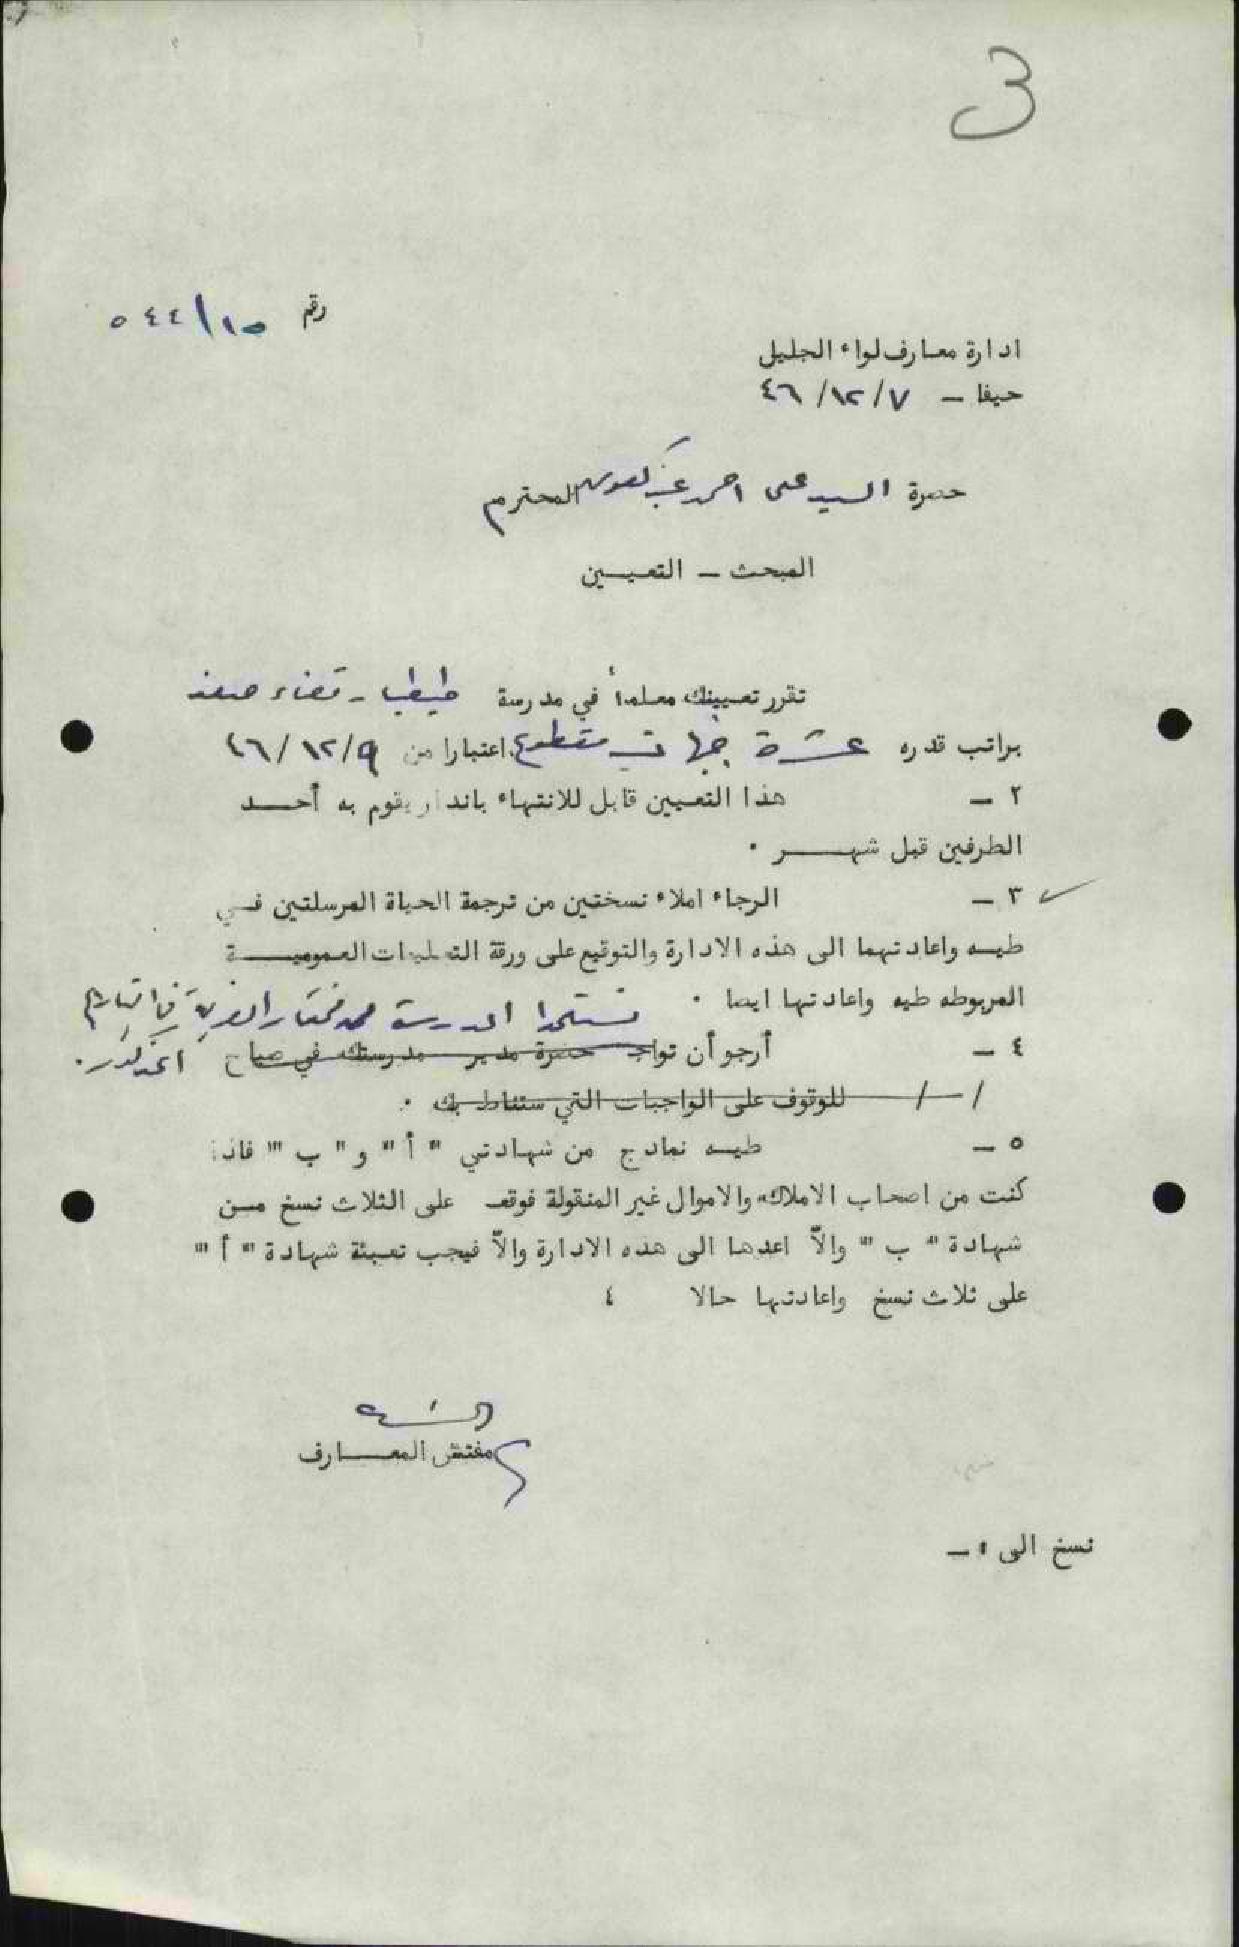 3
رقم ١٥/٥٤٤
ادارة معارف لواء الجليل
حيفا - ٤٦/١٢/٧
حضرة السيد علي احمد المحترم
المبحث - التعيـــين
تقرر تعيينك معلماً في مدرسة طيطبا - قضاء صفد
براتب قدره عشرة جنيهات مقطوع اعتبارا من ٤٦/١٢/٩
٢ - هذا التعيين قابل للانتهاء بانذار يقوم به أحــد
الطرفين قبل شهــر ٠
٣ - الرجاء املاء نسختين من ترجمة الحياة المرسلتين فــي
طيـه واعادتهما الى هذه الادارة والتوقيع على ورقة التعليمات العموميــة
المربوطه طيه واعادتها ايضا ٠
تستلم المدرسة من مختار القرية في التاريخ
٤ - أرجو أن تواجه حضرة مدير مدرستك في صباح المذكور.
/ / للوقوف على الواجبات التي ستناط بك ٠
٥ - طيـه نماذج من شهادتي " أ " و " ب " فاذا
كنت من اصحاب الاملاك والاموال غير المنقولة فوقع على الثلاث نسخ مــن
شهادة " ب " والاّ اعدها الى هذه الادارة والاّ فيجب تعبئة شهادة " أ "
على ثلاث نسخ واعادتها حالا ٤
مفتش المعــارف
نسخ الى :-